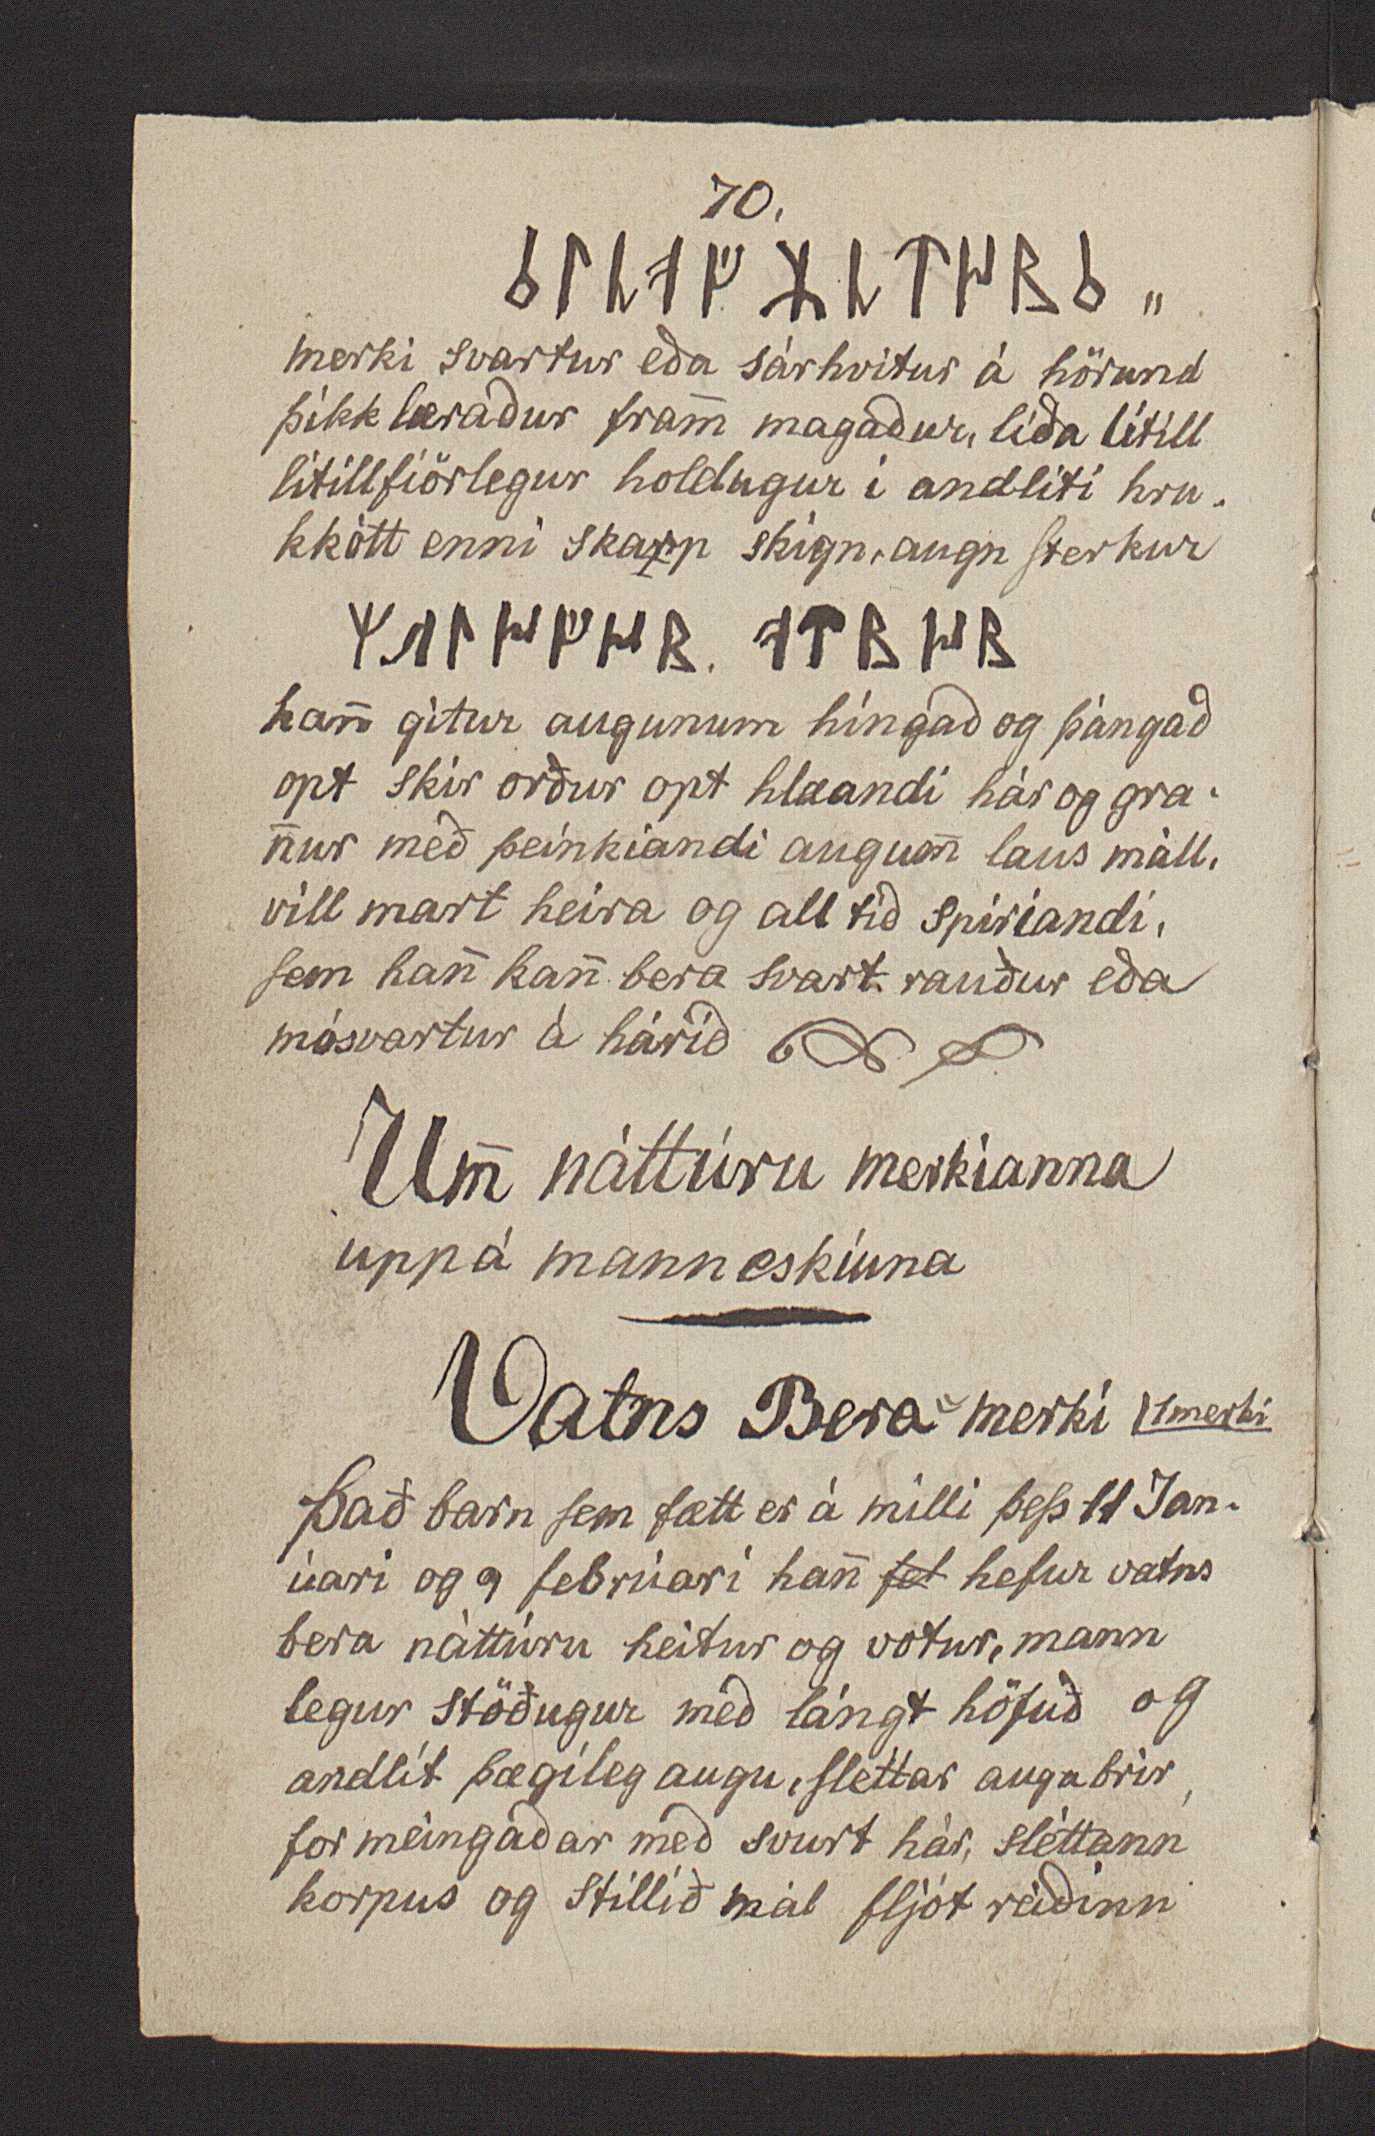 70.
merki svartur eða sárhvitur á hörund
þikk læraður fram̄ magaður, liða litill
litillfiörlegur holdugur i andliti hru-
kkótt enni skarp skign, augn sterkur
han̄ gitur augunum hingað og þángað
opt skir orður opt hlæandi hár og gra-
n̄ur með þeinkiandi augum̄ laus máll,
vill mart heira og all tið spiriandi,
sem han̄ kan̄ bera svart rauður eða
mósvartur á hárið
Um̄ náttúru merkianna
uppá manneskiuna
Vatns Bera merki 11merki
Það barn sem fætt er á milli þess 11 Jan-
úari og 9 februari han̄ hefur vatns
bera náttúru heitur og votur, mann
legur stöðugur með lángt höfuð og
andlit þægileg augu, slettar augabrir,
formeingaðar með svart hár, sléttann
korpus og stillið mál fljót ráðinn